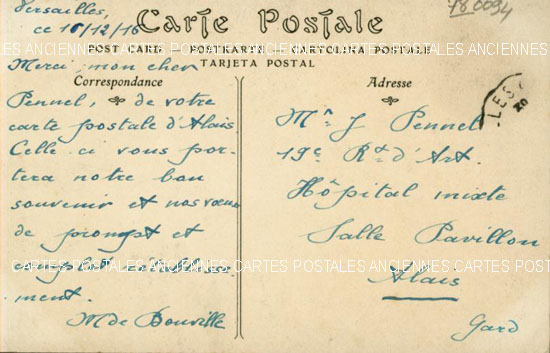 Versailles,
ce 16/12/16
78 0094
Carte Postale
POST CARD — POSTKARTE — CARTOLINA POSTALE
CARTES POSTALES ANCIENNES CARTES POSTALES ANCIENNES
TARJETA POSTAL
Correspondance
Merci, mon cher
Pennel, de votre
carte postale d'Alais
Celle-ci vous por-
tera notre bon
souvenir et nos vœux
de prompt et
complet rétablisse-
ment.
M de Bouville
Adresse
Mr J Pennel
19e Rt d'Art.
Hôpital mixte
Salle Pavillon
CARTES POSTALES ANCIENNES CARTES POSTALES ANCIENNES
Alais
Gard